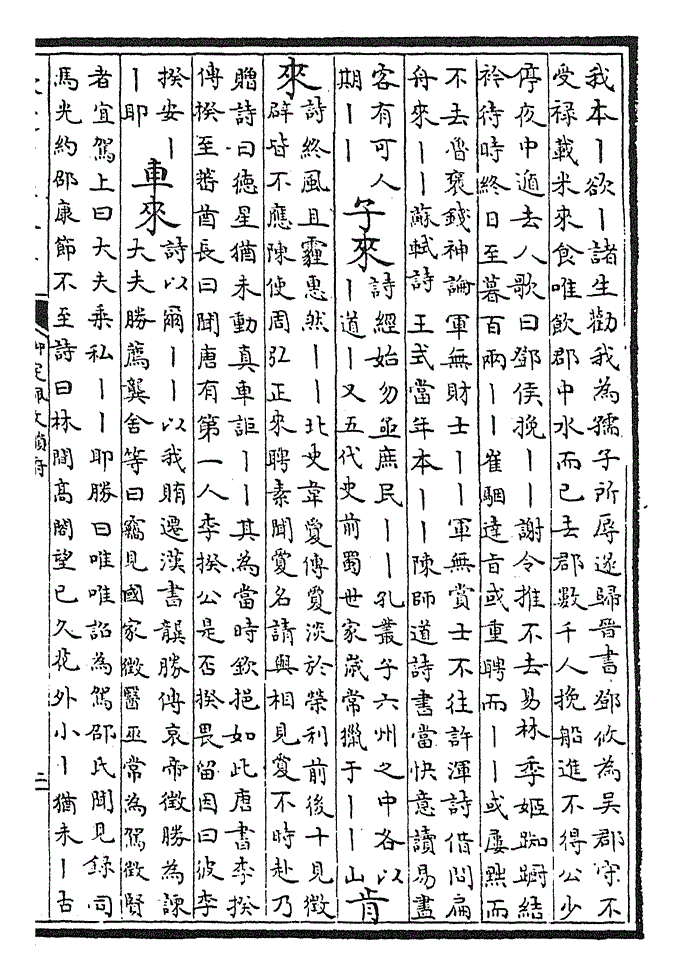 我本丨欲丨諸生勸我為孺子所辱遂歸晉書鄧攸為吴郡守不
受祿載米來食唯飲郡中水而已去郡數千人挽船進不得公少
停夜中遁去人歌曰鄧侯挽丨丨謝令推不去易林季姬踟蹰結
衿待時終日至暮百兩丨丨崔駰達旨或重聘而丨丨或屢黜而
不去魯褒錢神論軍無財士丨丨軍無賞士不往許渾詩借問扁
舟來丨丨蘇軾詩王式當年本丨丨陳師道詩書當快意讀易盡
客有可人期丨丨
子來
詩經始勿亟庶民丨丨孔叢子六州之中各以
丨道丨又五代史前蜀世家嵗常獵于丨丨山
肯來
詩終風且霾惠然丨丨北史韋夐傳夐淡於榮利前後十見徵
辟皆不應陳使周弘正來聘素聞夐名請與相見夐不時赴乃
贈詩曰德星猶未動真車詎丨丨其為當時欽挹如此唐書李揆
傳揆至蕃酋長曰聞唐有第一人李揆公是否揆畏留因曰彼李
揆安丨丨耶
車來
詩以爾丨丨以我賄遷漢書龔勝傳哀帝徵勝為諫
大夫勝薦龔舍等曰竊見國家徵醫巫常為駕徵賢
者宜駕上曰大夫乘私丨丨耶勝曰唯唯詔為駕邵氏聞見錄司
馬光約邵康節不至詩曰林間髙閣望已久花外小丨猶未丨古
御定佩文韻府
二